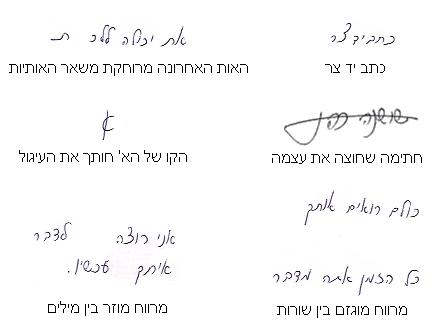 כתב יד צר
כתב יד צר
את יכולה ללכ ת
האות האחרונה מרוחקת משאר האותיות
שושנה כהן
חתימה שחוצה את עצמה
א
הקו של הא' חותך את העיגול
כולם רואים אותך
כל הזמן אתה מדבר
מרווח מוגזם בין שורות
אני רוצה לדבר
איתך עכשיו.
מרווח מוזר בין מילים